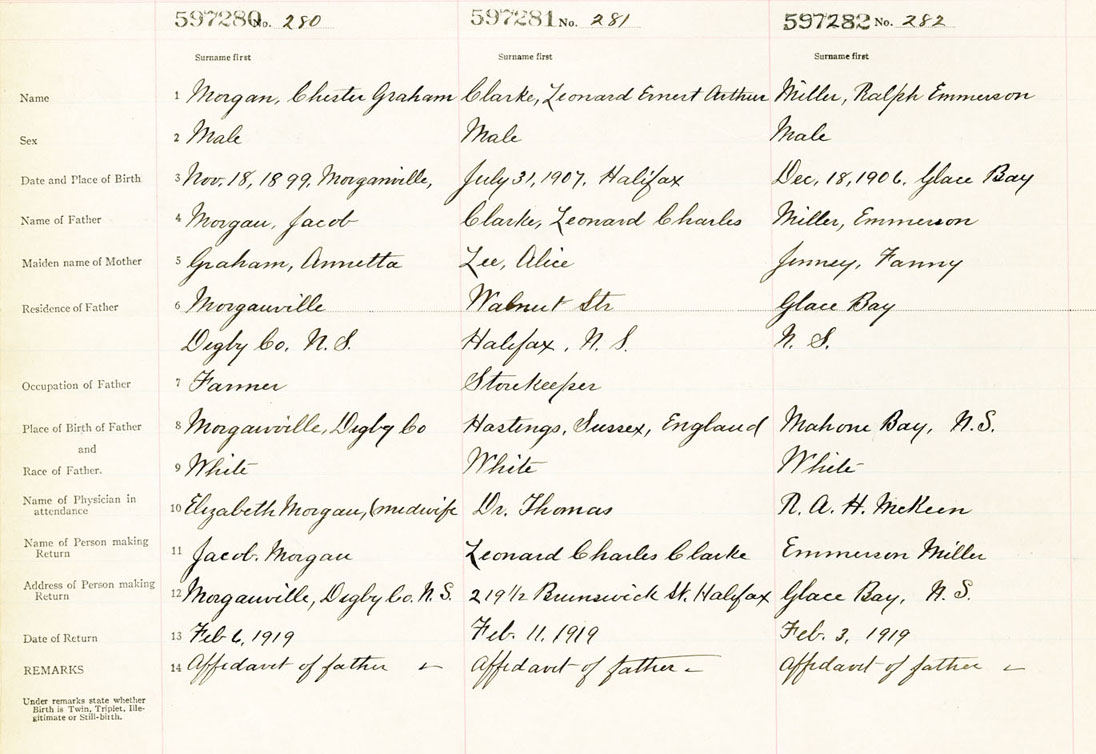 597280 No. 280 597281 No. 281 597282 No. 282
Surname first Surname first Surname first
Name 1 Morgan, Chester Graham Clarke, Leonard Ernest Arthur Miller, Ralph Emmerson
Sex 2 Male Male Male
Date and Place of Birth 3 Nov. 18, 1899, Morganville, July 31, 1907, Halifax Dec, 18, 1906, Glace Bay
Name of Father 4 Morgan, Jacob Clarke, Leonard Charles Miller, Emmerson
Maiden name of Mother 5 Graham, Annetta Lee, Alice Jinney, Fanny
Residence of Father 6 Morganville Walnut Str Glace Bay
Digby Co. N. S. Halifax, N. S. N. S.
Occupation of Father 7 Farmer Storekeeper
Place of Birth of Father 8 Morganville, Digby Co Hastings, Sussex, England Mahone Bay, N.S.
and
Race of Father. 9 White White White
Name of Physician in
attendance 10 Elizabeth Morgan, (midwife Dr. Thomas R. A. H. McKeen
Name of Person making
Return 11 Jacob. Morgan Leonard Charles Clarke Emmerson Miller
Address of Person making
Return 12 Morganville, Digby Co. N. S. 219 1/2 Brunswick St. Halifax Glace Bay, N. S.
Date of Return 13 Feb 6, 1919 Feb. 11, 1919 Feb. 3, 1919
REMARKS 14 Affidavit of father Affidavit of father Affidavit of father
Under remarks state whether
Birth is Twin, Triplet, Ille-
gitimate or Still-birth.